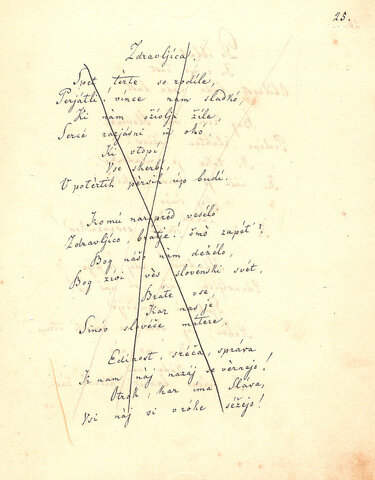 25.
Zdravljica.
Spet tèrte so rodile,
Perjátli, vince nam sladkó,
Ki nam oživlja žile,
Sercé razjásni in okó.
Ki vtopi
Vse skerbi,
V potèrtih pèrsih úp budi.
Komú nar pred vesélo
Zdravljico, bratje! čmò zapét'?
Bog našo nam deželo,
Bog živi vès slovénski svét,
Bráte vse
Kar nas je
Sinóv slovéče mátere.
Edinost, sréča, správa
K nam naj nazaj se vèrnejo!
Otrók, kar ima Sláva,
Vsi náj si v róke séžejo!